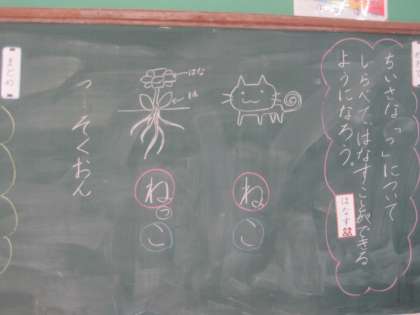 ちいさな「っ」について
しらべて、はなすことができる
ようになろう。
はなす
ねこ
はな
ねっこ
っ…そくおん
まとめ